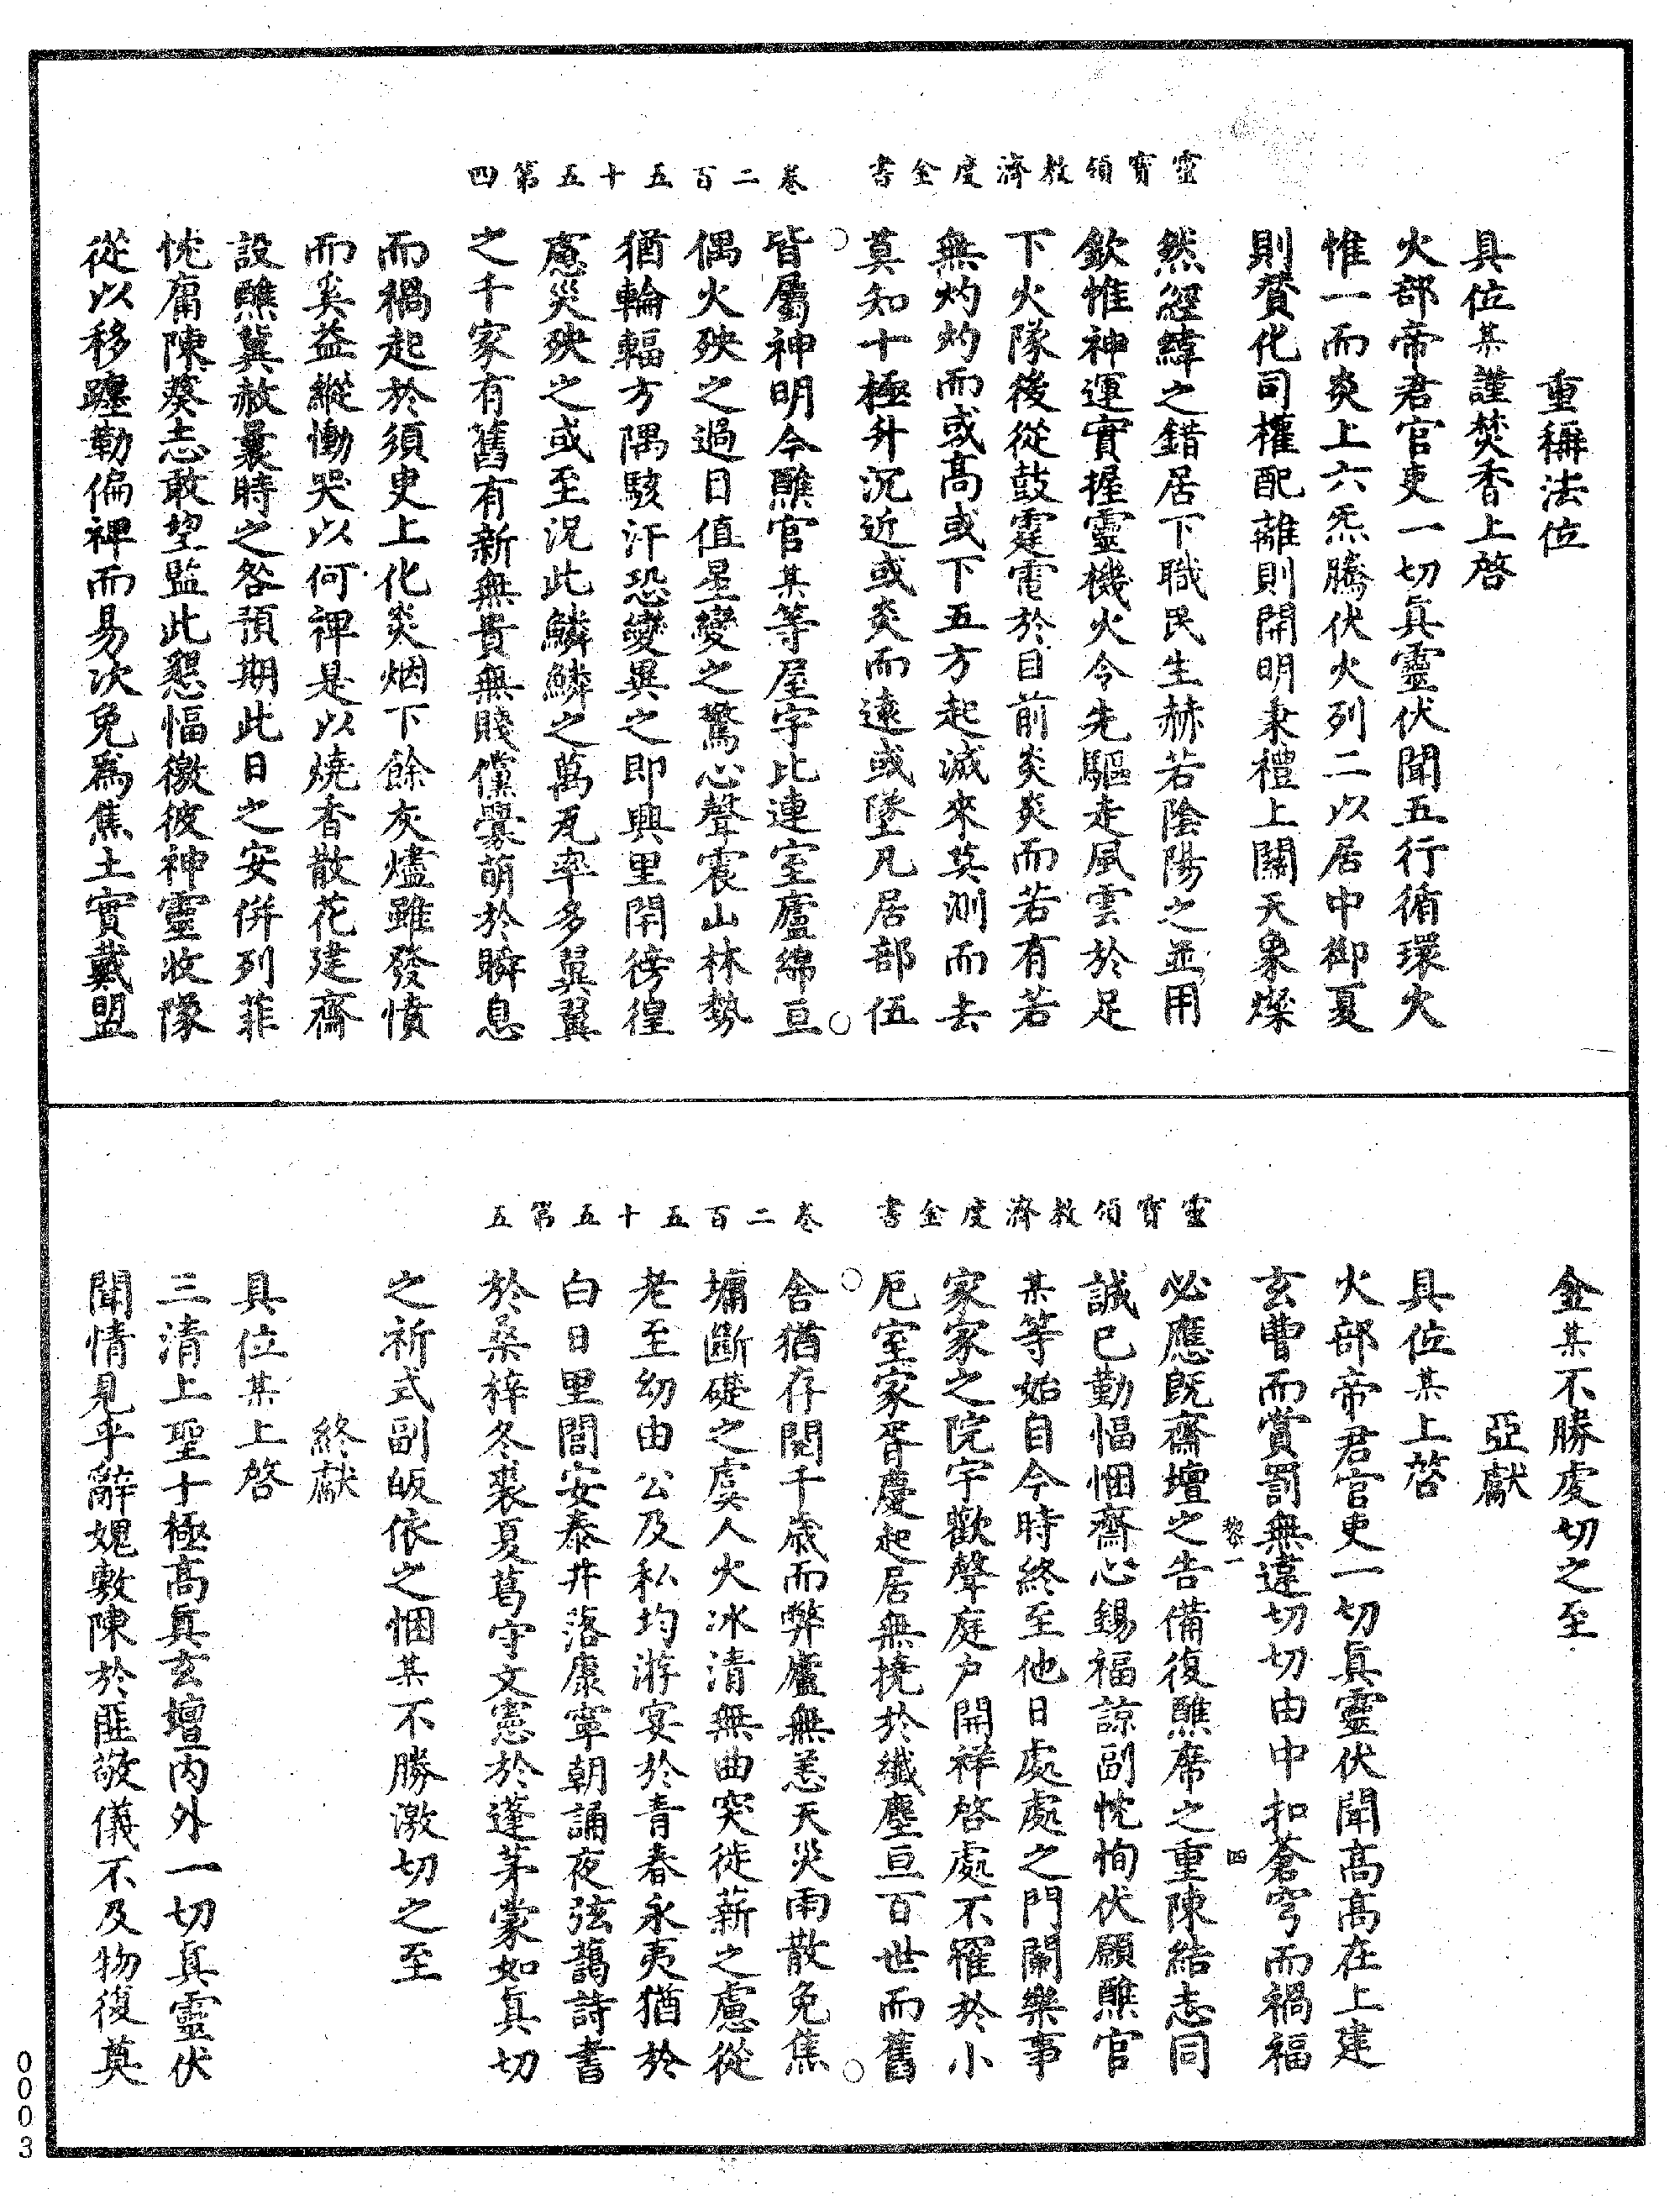 靈寶領教濟度金書　卷二百五十五第四
重稱法位
具位某謹焚香上啓
火部帝君官吏一切眞靈伏聞五行循環火
惟一而炎上六炁騰伏火列二以居中御夏
則贊化司權配離則開明秉禮上關天象燦
然經緯之錯居下職民生赫若陰陽之並用
欽惟神運實握靈機火令先驅走風雲於足
下火隊後從鼓霆電於目前炎炎而若有若
無灼灼而或高或下五方起滅來莫測而去
莫知十極升沉近或炎而遠或墜凡居部伍
皆屬神明今醮官某等屋宇比連室廬綿亘
偶火殃之過日值星變之驚心聲震山林勢
猶輪輻方隅駭汗恐變異之即興里閈徬徨
慮災殃之或至況此鱗鱗之萬瓦率多翼翼
之千家有舊有新無貴無賤儻釁萌於瞬息
而禍起於須臾上化炎烟下餘灰燼雖發憤
而奚益縱慟哭以何裨是以燒香散花建齋
設醮冀赦曩時之咎預期此日之安併列菲
忱庸陳葵志敢望監此懇愊徼彼神靈收隊
從以移躔勒偏裨而易次免爲焦土實戴盟
靈寶領教濟度金書　卷二百五十五第五
金某不勝虔切之至
亞獻
具位某上啓
火部帝君官吏一切眞靈伏聞高高在上建
玄曹而賞罰無違切切由中扣蒼穹而禍福
必應旣齋壇之告備復醮席之重陳結志同
誠已勤愊悃齋心錫福諒副忱恂伏願醮官
某等始自今時終至他日處處之門闌樂事
家家之院宇歡聲庭戶開祥啓處不罹於小
厄室家胥慶起居無撓於纖塵亘百世而舊
舍猶存閱千歲而弊廬無恙天災雨散免焦
墉斷礎之虞人火冰清無曲突徙薪之慮從
老至幼由公及私均游宴於青春永夷猶於
白日里閭安泰井落康寧朝誦夜弦藹詩書
於桑梓冬裘夏葛守文憲於蓬茅蒙如眞切
之祈式副皈依之悃某不勝激切之至
終獻
具位某上啓
三清上聖十極高眞玄壇內外一切眞靈伏
聞情見乎辭媿敷陳於匪敬儀不及物復奠
0003